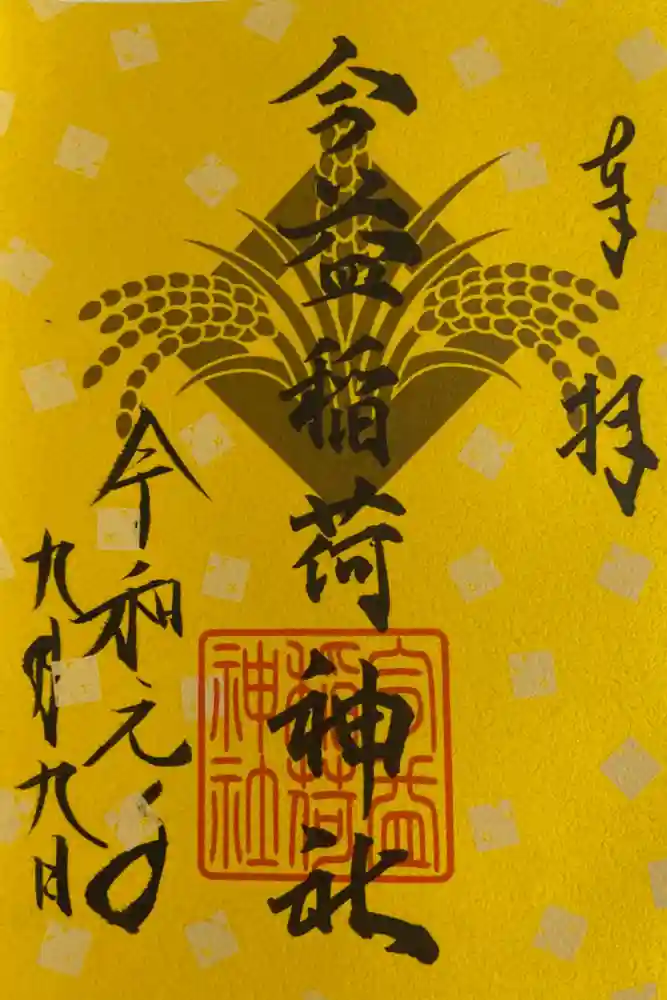 奉拝
益稲荷神社
益
稲荷
神社
令和元年
九月九日